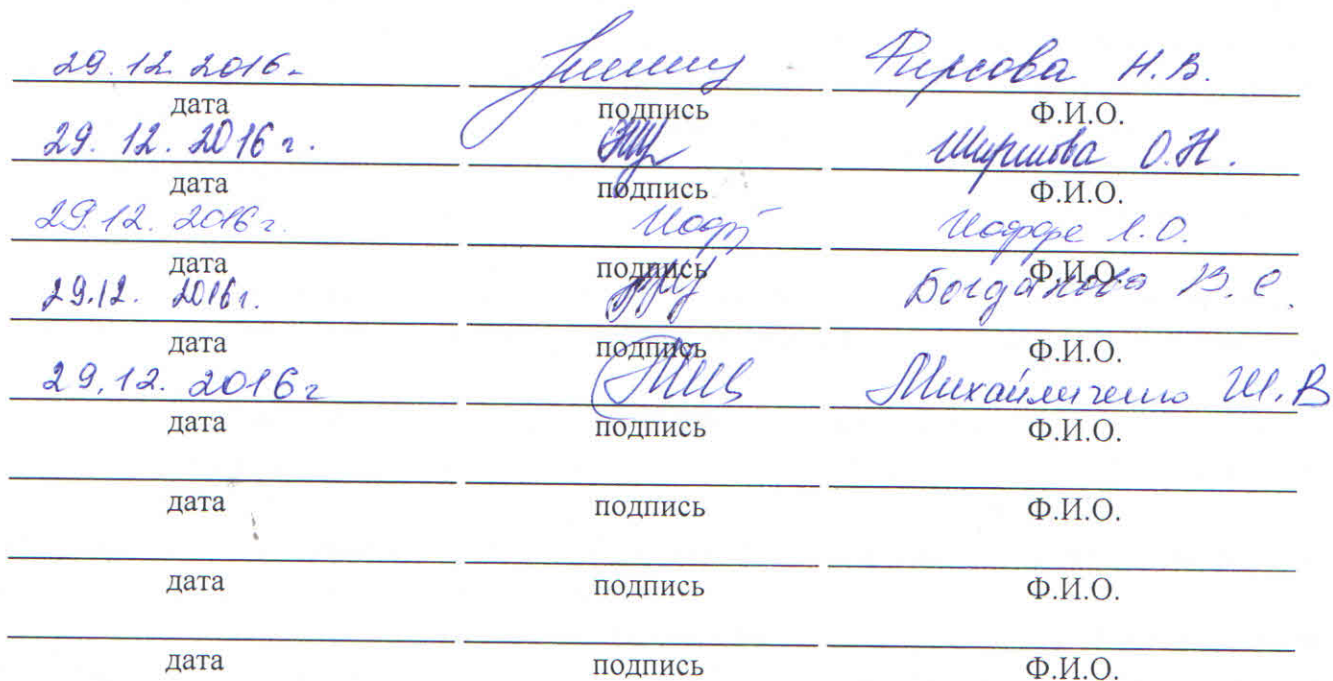 29.12.2016. Фирсова Н.В.
дата подпись Ф.И.О.
29. 12. 2016 г. Ширшова О.Н.
дата подпись Ф.И.О.
29.12. 2016г. Иоффе Л.О.
дата подпись Ф.И.О.
29.12. 2016г. Богданова В.С.
дата подпись Ф.И.О.
29.12. 2016г Михайличенко Ш.В
дата подпись Ф.И.О.
дата подпись Ф.И.О.
дата подпись Ф.И.О.
дата подпись Ф.И.О.